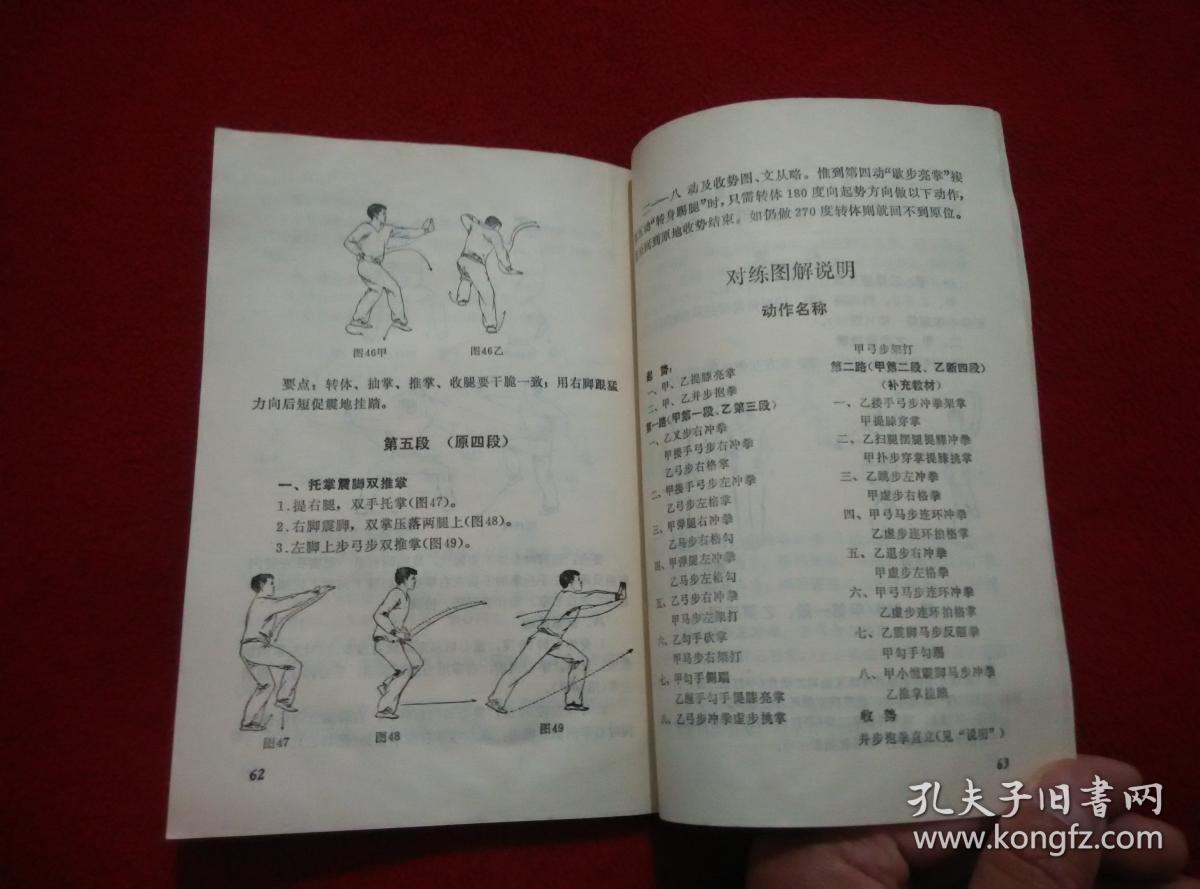 图46甲
图46乙
要点：转体、抽掌、推掌、收腿要干脆一致；用右脚跟猛
力向后短促震地挂踏。
第五段 （原四段）
一、托掌震脚双推掌
1.提右腿，双手托掌(图47)。
2.右脚震脚，双掌压落两腿上(图48)。
3.左脚上步弓步双推掌(图49)。
图47
图48
图49
62
二——八 动及收势图、文从略。惟到第四动“歇步亮掌”接
动“转身踢腿”时，只需转体 180 度向起势方向做以下动作，
回到原地收势结束。如仍做 270 度转体则就回不到原位。
对练图解说明
动作名称
起 势：
一、甲、乙提膝亮掌
二、甲、乙并步抱拳
第一路(甲第一段、乙第三段)
一、乙叉步右冲拳
甲接手弓步右冲拳
乙弓步右格掌
二、甲接手弓步左冲拳
乙弓步左格掌
三、甲弹腿右冲拳
乙马步右格勾
四、甲弹腿左冲拳
乙马步左格勾
五、乙弓步右冲拳
甲马步左架打
六、乙勾手砍掌
甲马步右架打
七、甲勾手侧踹
乙勾手提膝亮掌
八、乙弓步冲拳虚步挑掌
甲弓步架打
第二路(甲第二段、乙新四段)
(补充教材)
一、乙接手弓步冲拳架掌
甲提膝穿掌
二、乙扫腿摆腿提膝冲拳
甲扑步穿掌提膝挑掌
三、乙跳步左冲拳
甲虚步右格拳
四、甲弓马步连环冲拳
乙虚步连环拍格掌
五、乙退步右冲拳
甲虚步左格拳
六、甲弓马步连环冲拳
乙虚步连环拍格掌
七、乙震脚马步反砸拳
甲勾手勾踢
八、甲小缠震脚马步冲拳
乙推掌挂踏
收 势
并步抱拳直立(见“说明”)
63
孔夫子旧书网
www.kongfz.com